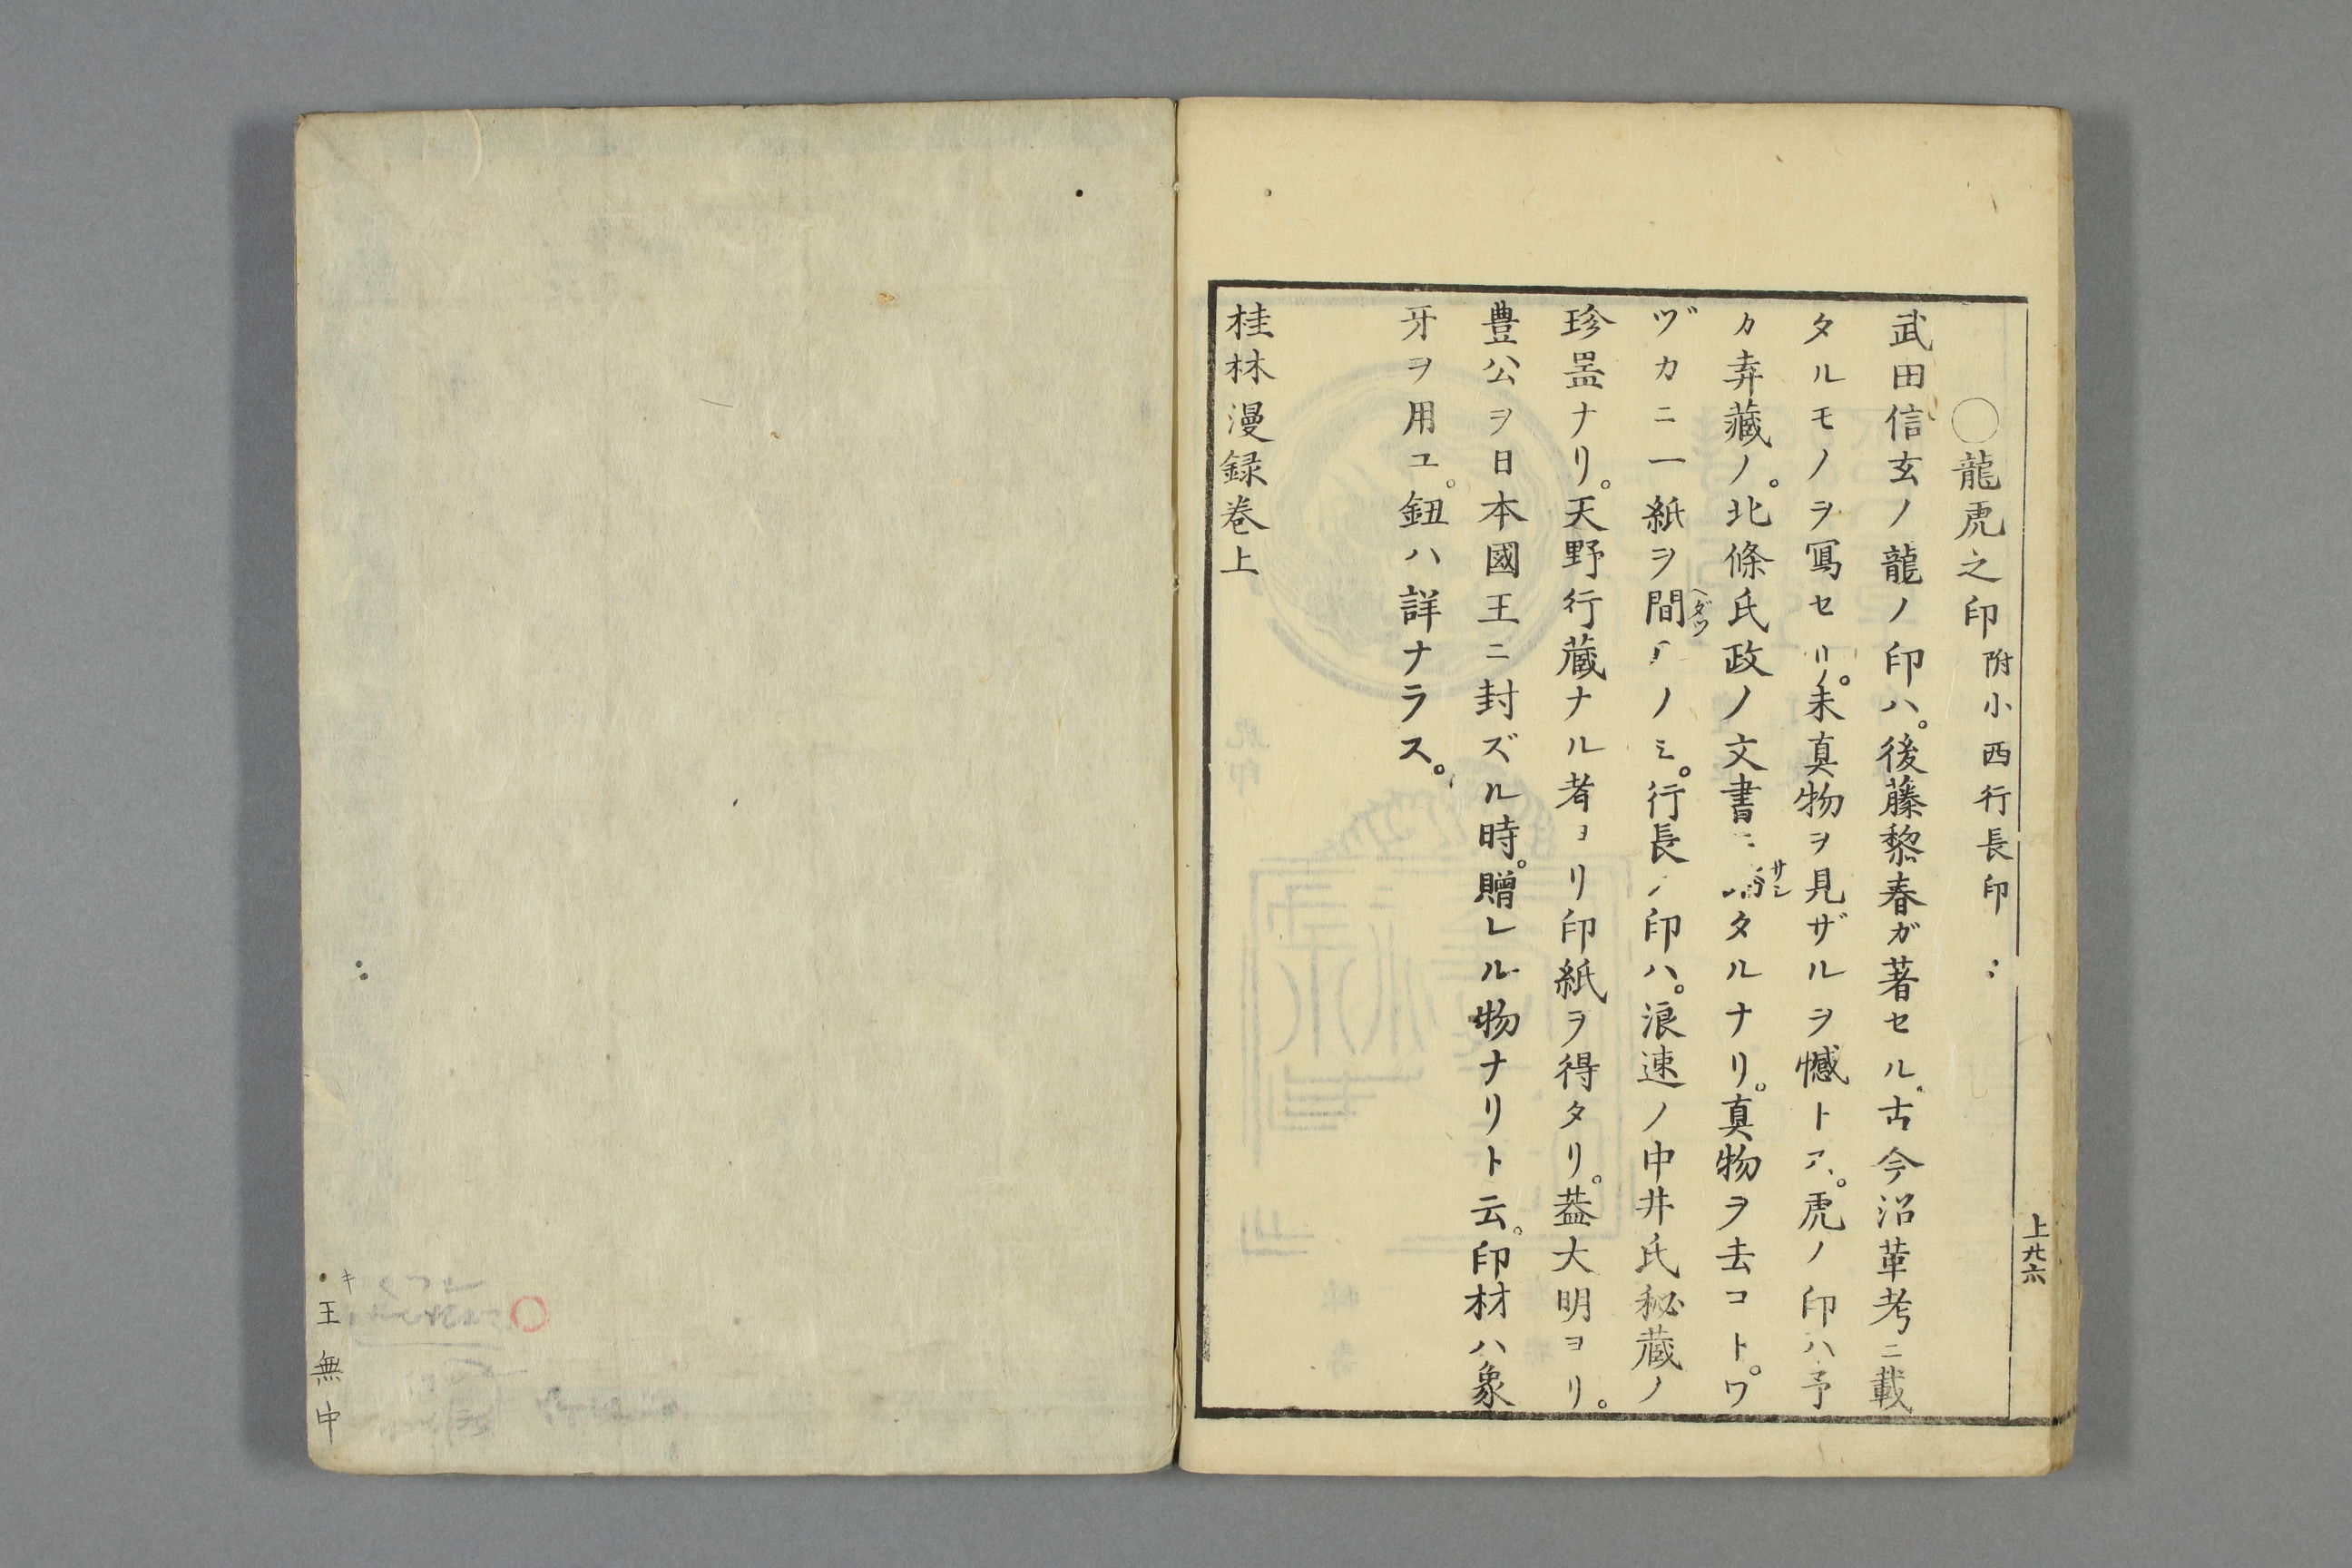 ○龍虎之印附小西行長印
武田信玄ノ龍ノ印ハ。後藤黎春ガ著セル。古今沿革考ニ載
タルモノヲ寫セリ。未真物ヲ見ザルヲ憾トス。虎ノ印ハ予
カ弆藏ノ。北條氏政ノ文書ニサシタルナリ。真物ヲ去コト。ワ
ヅカニ一紙ヲ間ヘダツノミ。行長ノ印ハ。浪速ノ中井氏秘蔵ノ
珍噐ナリ。天野行蔵ナル者ヨリ印紙ヲ得タリ。葢大明ヨリ。
豊公ヲ日本國王ニ封ズル時。贈レル物ナリト云。印材ハ象
牙ヲ用ユ。鈕ハ詳ナラス。
桂林漫録巻上
上廿六
キ
王無中